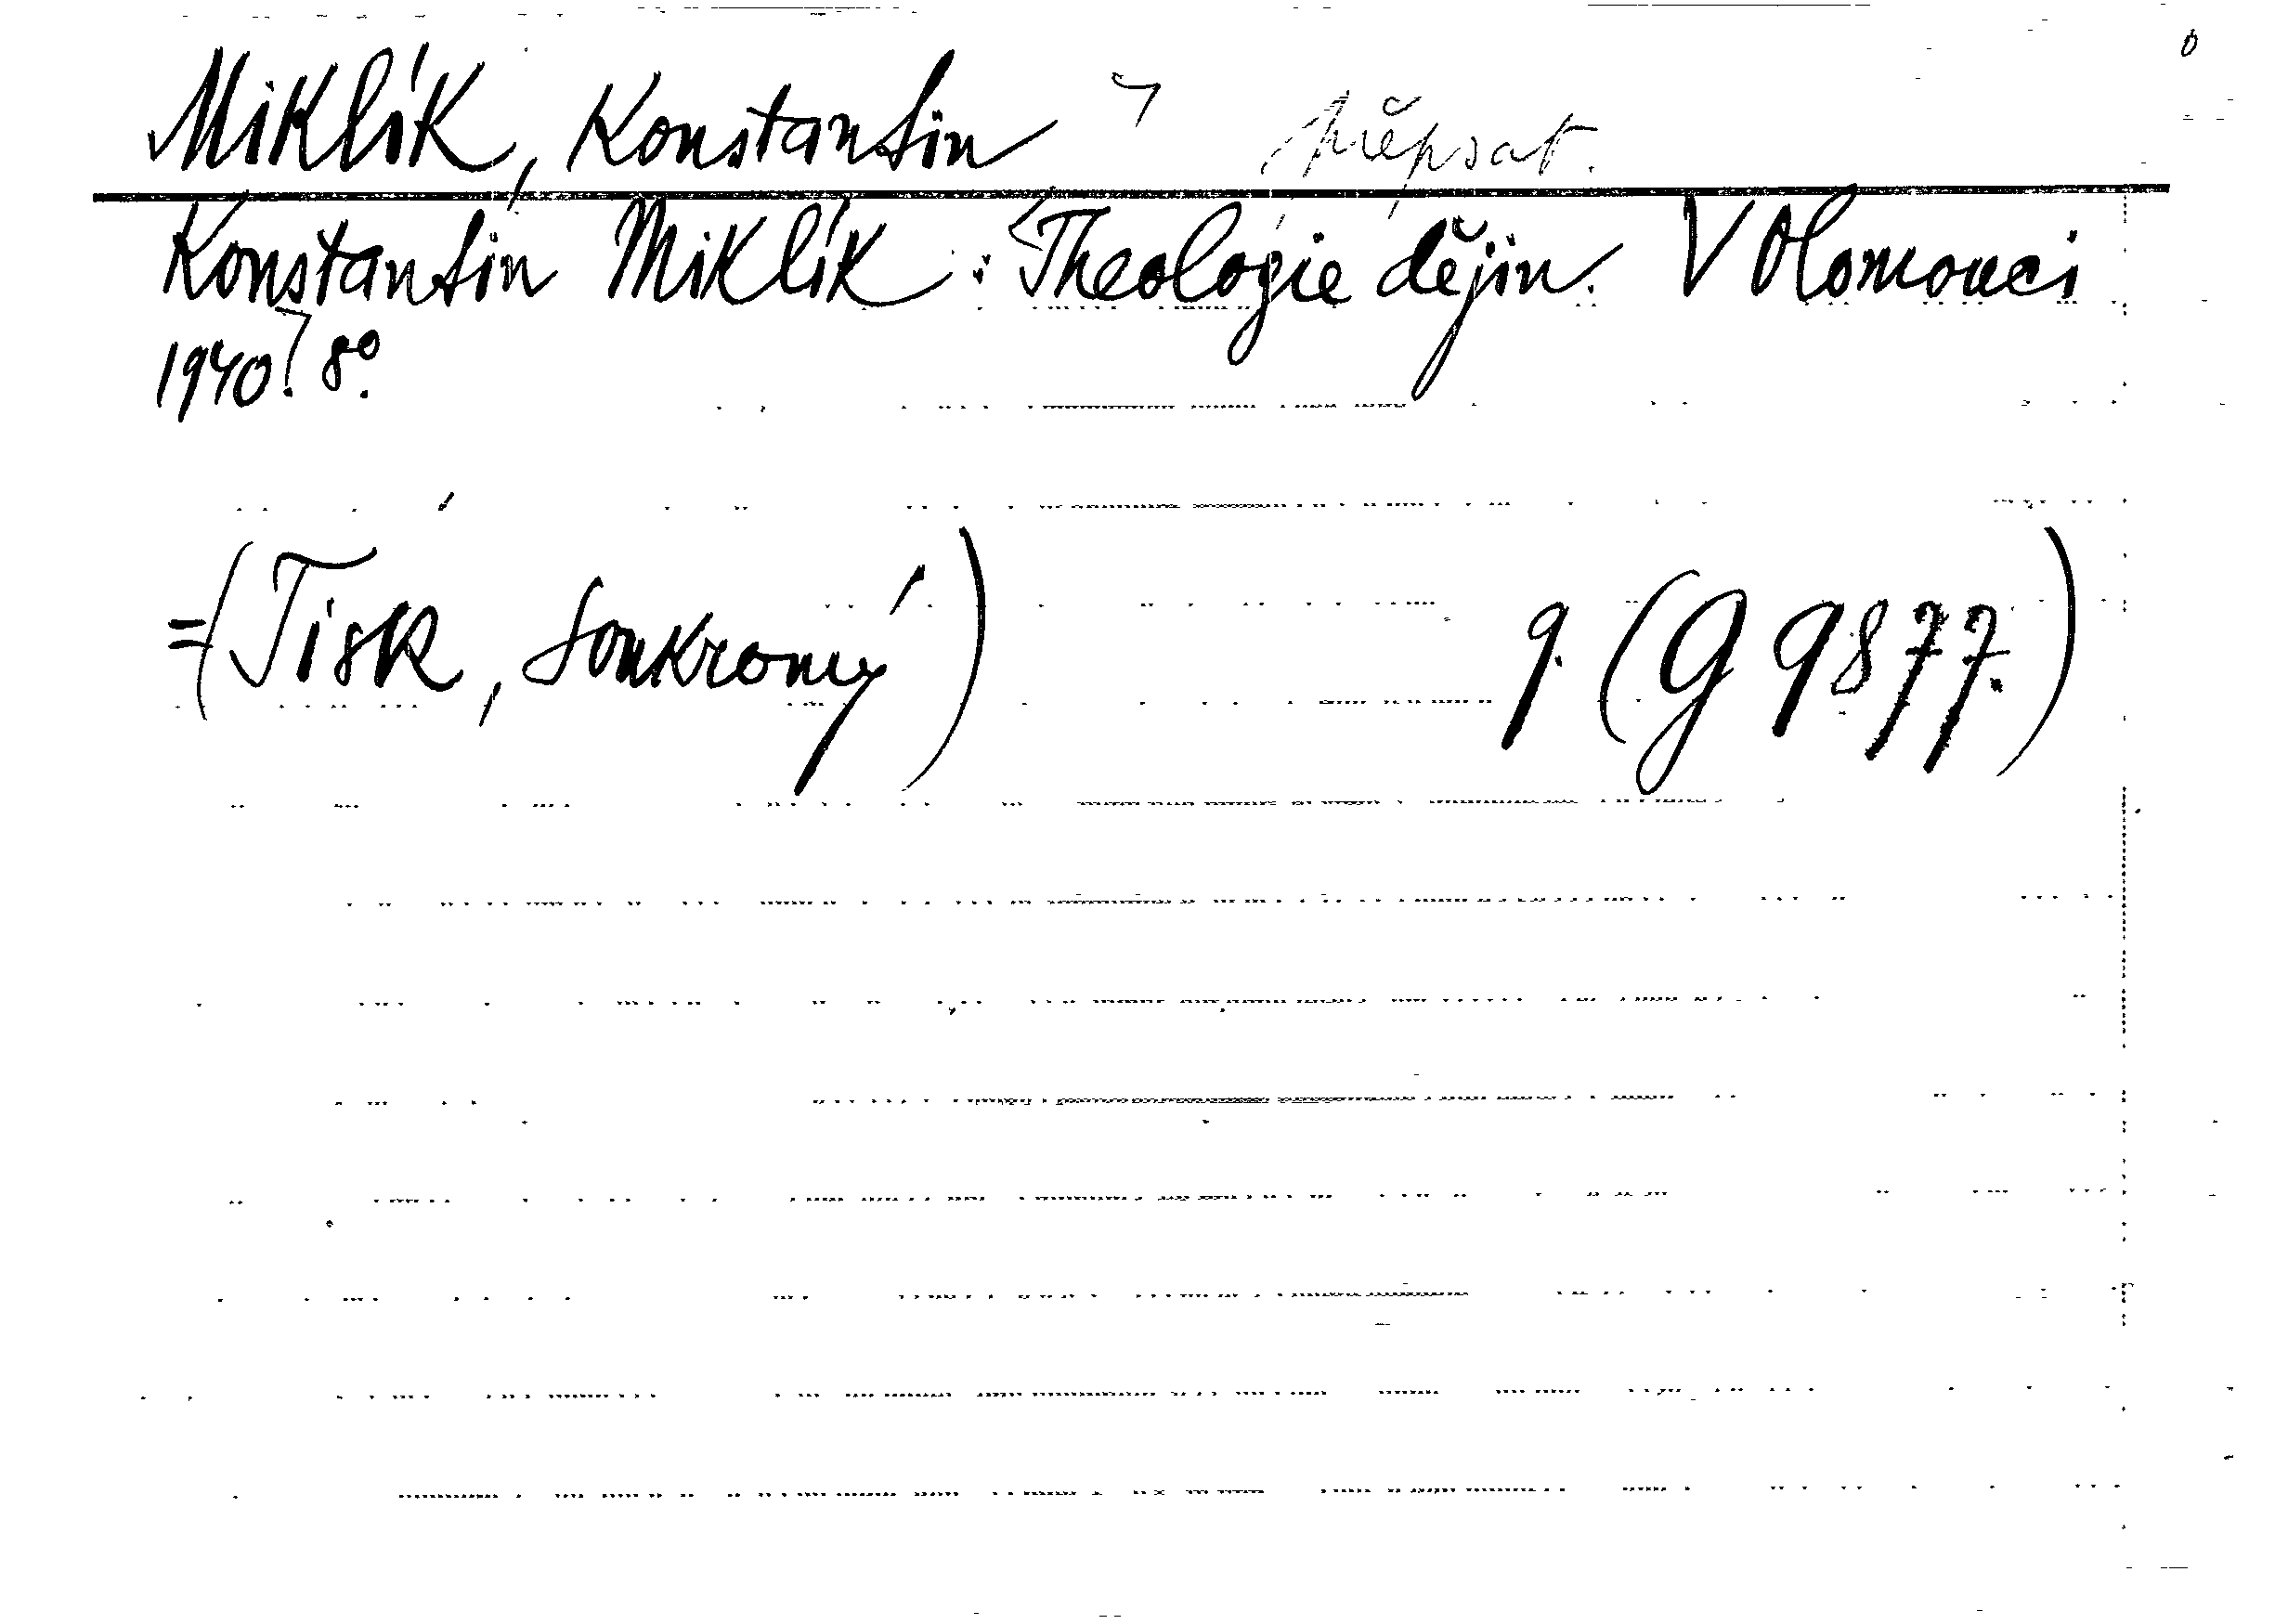 Miklík, Konstantin přepsat.
Konstantin Miklík: Theologie dějin. V Olomouci
1940. 8°.
=(Tisk, soukromý) q. (G 9877.)